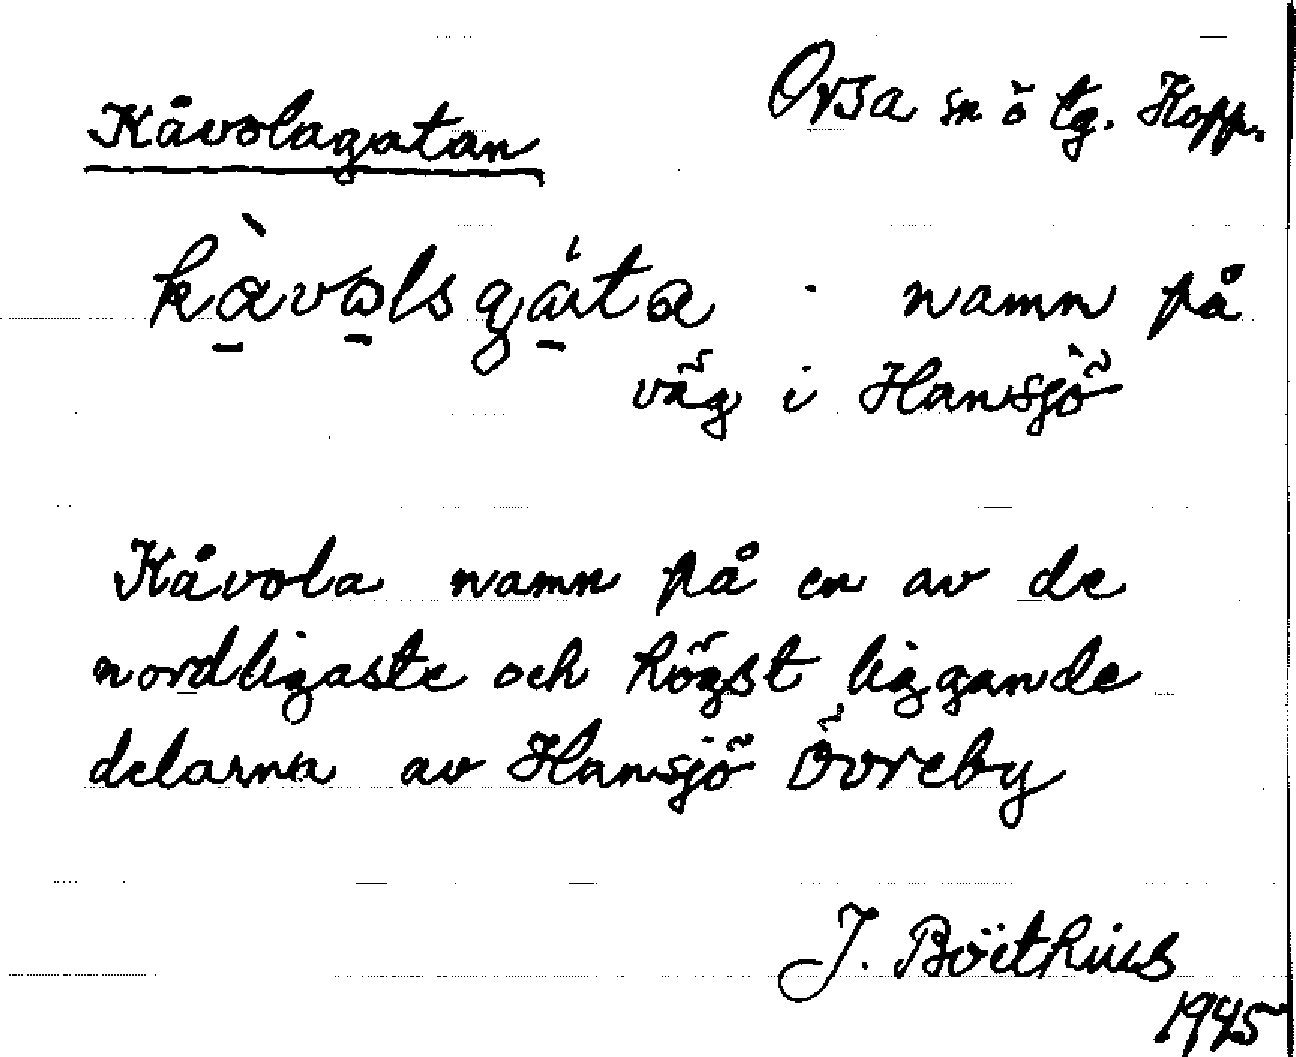 Orsa sn ö tg. Kopp.
Kåvolagatan
kàvo̱lsgáta · namn på
väg i Hansjö
Kåvola namn på en av de
nordligaste och högst liggande
delarna av Hansjö Övreby
J. Boëthius
1945